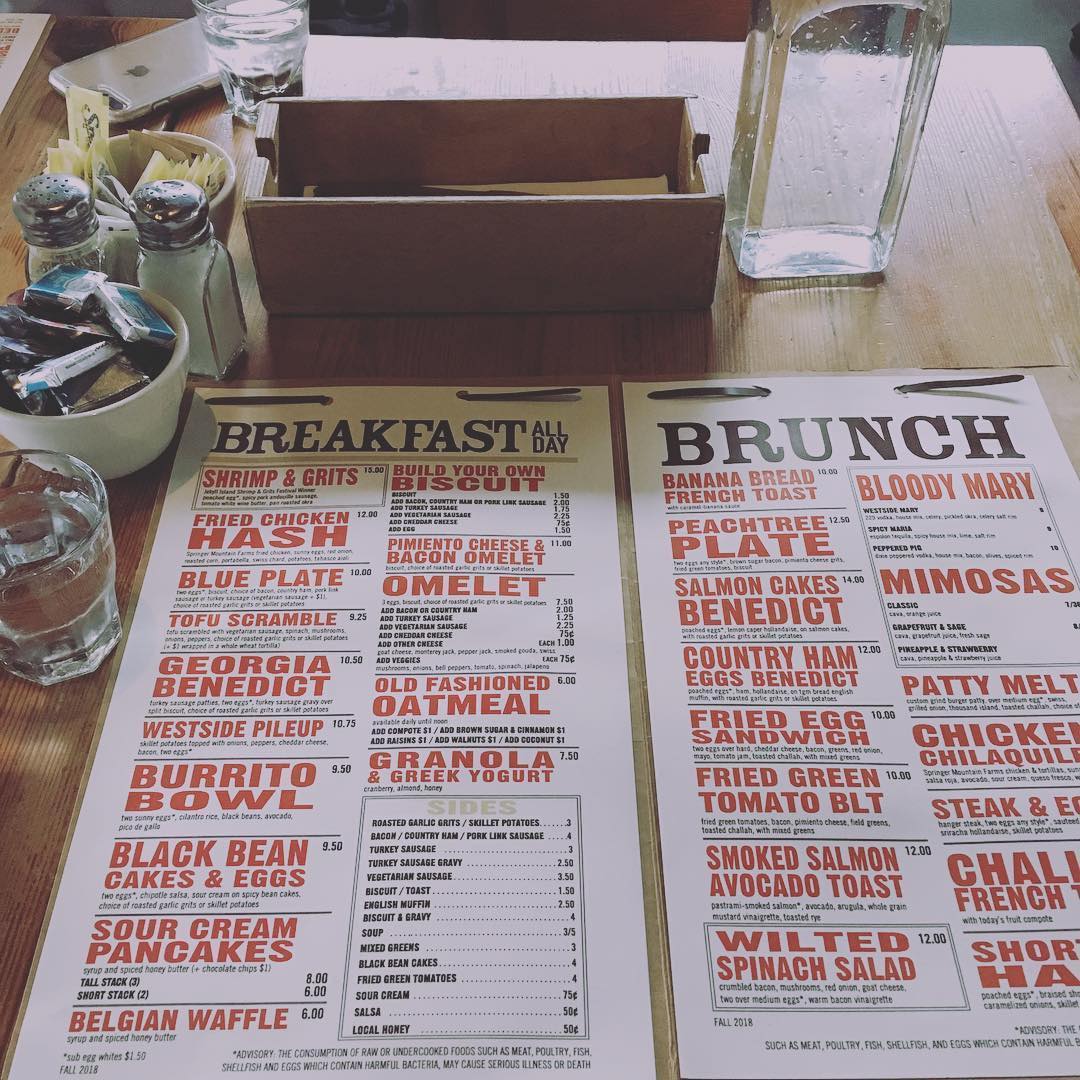 BREAKFAST ALL DAY
SHRIMP & GRITS 15.00
Jekyll Island Shrimp & Grits Festival Winner
poached egg*, spicy pork andouille sausage,
tomato white wine butter, pan roasted okra
FRIED CHICKEN 12.00
HASH
Springer Mountain Farms fried chicken, sunny eggs, red onion,
roasted corn, portabella, swiss chard, potatoes, tabasco aioli
BLUE PLATE 10.00
two eggs*, biscuit, choice of bacon, country ham, pork link
sausage or turkey sausage (vegetarian sausage + $1),
choice of roasted garlic grits or skillet potatoes
TOFU SCRAMBLE 9.25
tofu scrambled with vegetarian sausage, spinach, mushrooms,
onions, peppers, choice of roasted garlic grits or skillet potatoes
(+ $1 wrapped in a whole wheat tortilla)
GEORGIA 10.50
BENEDICT
turkey sausage patties, two eggs*, turkey sausage gravy over
split biscuit, choice of roasted garlic grits or skillet potatoes
WESTSIDE PILEUP 10.75
skillet potatoes topped with onions, peppers, cheddar cheese,
bacon, two eggs*
BURRITO 9.50
BOWL
two sunny eggs*, cilantro rice, black beans, avocado,
pico de gallo
BLACK BEAN 9.50
CAKES & EGGS
two eggs*, chipotle salsa, sour cream on spicy bean cakes,
choice of roasted garlic grits or skillet potatoes
SOUR CREAM
PANCAKES
syrup and spiced honey butter (+ chocolate chips $1)
TALL STACK (3) 8.00
SHORT STACK (2) 6.00
BELGIAN WAFFLE 6.00
syrup and spiced honey butter
*sub egg whites $1.50
FALL 2018
BUILD YOUR OWN
BISCUIT
BISCUIT 1.50
ADD BACON, COUNTRY HAM OR PORK LINK SAUSAGE 2.00
ADD TURKEY SAUSAGE 1.75
ADD VEGETARIAN SAUSAGE 2.25
ADD CHEDDAR CHEESE 75¢
ADD EGG 1.50
PIMIENTO CHEESE & 11.00
BACON OMELET
biscuit, choice of roasted garlic grits or skillet potatoes
OMELET
3 eggs, biscuit, choice of roasted garlic grits or skillet potatoes 7.50
ADD BACON OR COUNTRY HAM 2.00
ADD TURKEY SAUSAGE 1.25
ADD VEGETARIAN SAUSAGE 2.25
ADD CHEDDAR CHEESE 75¢
ADD OTHER CHEESE EACH 1.00
goat cheese, monterey jack, pepper jack, smoked gouda, swiss
ADD VEGGIES EACH 75¢
mushrooms, onions, bell peppers, tomato, spinach, jalapeno
OLD FASHIONED 6.00
OATMEAL
available daily until noon
ADD COMPOTE $1 / ADD BROWN SUGAR & CINNAMON $1
ADD RAISINS $1 / ADD WALNUTS $1 / ADD COCONUT $1
GRANOLA 7.50
& GREEK YOGURT
cranberry, almond, honey
SIDES
ROASTED GARLIC GRITS / SKILLET POTATOES......3
BACON / COUNTRY HAM / PORK LINK SAUSAGE ..4
TURKEY SAUSAGE 3
TURKEY SAUSAGE GRAVY 2.50
VEGETARIAN SAUSAGE 3.50
BISCUIT / TOAST 1.50
ENGLISH MUFFIN 2.50
BISCUIT & GRAVY 4
SOUP 3/5
MIXED GREENS 3
BLACK BEAN CAKES 4
FRIED GREEN TOMATOES 4
SOUR CREAM 75¢
SALSA 50¢
LOCAL HONEY 50¢
*ADVISORY: THE CONSUMPTION OF RAW OR UNDERCOOKED FOODS SUCH AS MEAT, POULTRY, FISH,
SHELLFISH AND EGGS WHICH CONTAIN HARMFUL BACTERIA, MAY CAUSE SERIOUS ILLNESS OR DEATH
BRUNCH
BANANA BREAD 10.00
FRENCH TOAST
with caramel-banana sauce
PEACHTREE 12.50
PLATE
two eggs any style*, brown sugar bacon, pimiento cheese grits,
fried green tomatoes, biscuit
SALMON CAKES 14.00
BENEDICT
poached eggs*, lemon caper hollandaise, on salmon cakes,
with roasted garlic grits or skillet potatoes
COUNTRY HAM 12.00
EGGS BENEDICT
poached eggs*, ham, hollandaise, on tgm bread english
muffin, with roasted garlic grits or skillet potatoes
FRIED EGG 10.00
SANDWICH
two eggs over hard, cheddar cheese, bacon, greens, red onion,
mayo, tomato jam, toasted challah, with mixed greens
FRIED GREEN 10.00
TOMATO BLT
fried green tomatoes, bacon, pimiento cheese, field greens,
toasted challah, with mixed greens
SMOKED SALMON 12.00
AVOCADO TOAST
pastrami-smoked salmon*, avocado, arugula, whole grain
mustard vinaigrette, toasted rye
WILTED 12.00
SPINACH SALAD
crumbled bacon, mushrooms, red onion, goat cheese,
two over medium eggs*, warm bacon vinaigrette
FALL 2018
BLOODY MARY
WESTSIDE MARY
223 vodka, house mix, celery, pickled okra, celery salt rim
SPICY MARIA
espolon tequila, spicy house mix, lime, salt rim
PEPPERED PIG 10
dixie peppered vodka, house mix, bacon, olives, spiced rim
MIMOSAS
CLASSIC
cava, orange juice
GRAPEFRUIT & SAGE
cava, grapefruit juice, fresh sage
PINEAPPLE & STRAWBERRY
cava, pineapple & strawberry
PATTY MELT
custom grind burger patty, over medium egg*, swiss,
grilled onion, thousand island, toasted challah, choice of
CHICKEN
CHILAQUILE
Springer Mountain Farms chicken & tortillas, sun
salsa roja, avocado, sour cream, queso fresco, w
STEAK & EG
hanger steak, two eggs any style*, sauteed
sriracha hollandaise, skillet potatoes
CHALL
FRENCH T
with today's fruit compote
SHORT
HA
poached eggs*, braised sho
caramelized onions, skillet
*ADVISORY: THE
SUCH AS MEAT, POULTRY, FISH, SHELLFISH, AND EGGS WHICH CONTAIN HARMFUL B